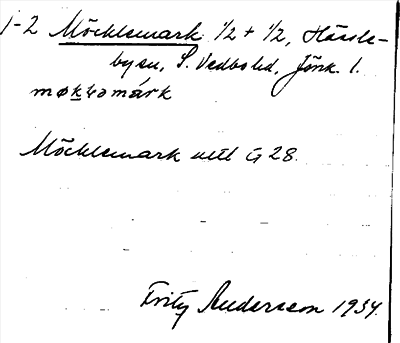 1-2 Möcklemark 1/2 + 1/2, Hässle-
bysn, S. Vedbo hd, Jönk. l.
Möcklemark utl G 28.
Fritz Andersson 1934.